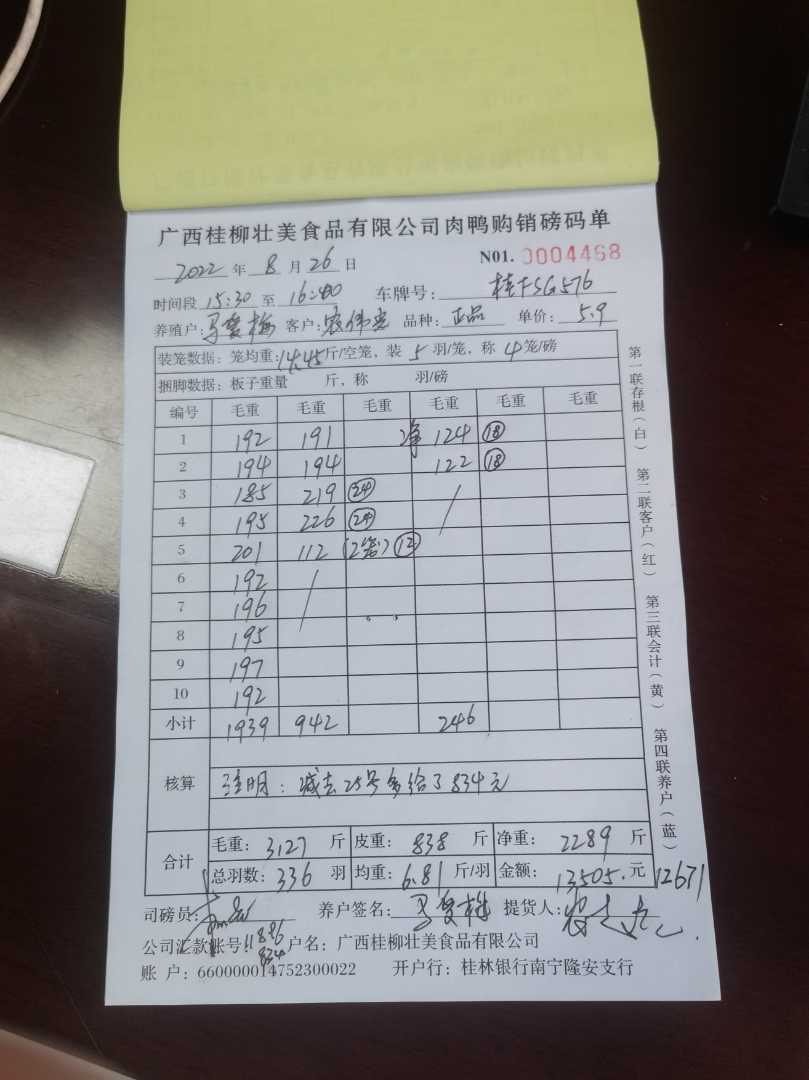 广西桂柳壮美食品有限公司肉鸭购销磅码单
2022 年 8 月 26 日 N01. 0004468
时间段 15:30 至 16:40 车牌号: 桂FSG576
养殖户: 马爱梅 客户: 农伟 品种: 正品 单价: 5.9
装笼数据: 笼均重: 14.45 斤/空笼, 装 5 羽/笼, 称 4 笼/磅
捆脚数据: 板子重量 斤, 称 羽/磅
编号 毛重 毛重 毛重 毛重 毛重 毛重
1 192 191 净 124 (18)
2 194 194 122 (18)
3 185 219 (24)
4 195 226 (24)
5 201 112 (2笼) (12)
6 192
7 196
8 195
9 197
10 192
小计 1939 942 246
核算 注明: 减去25号多给了834元
合计 毛重: 3127 斤 皮重: 838 斤 净重: 2289 斤
总羽数: 336 羽 均重: 6.81 斤/羽 金额: 13505. 元 12671
司磅员: 养户签名: 马爱梅 提货人:
公司汇款账号: 户名: 广西桂柳壮美食品有限公司
834
账 户: 660000014752300022 开户行: 桂林银行南宁隆安支行
第一联存根(白) 第二联客户(红) 第三联会计(黄) 第四联养户(蓝)